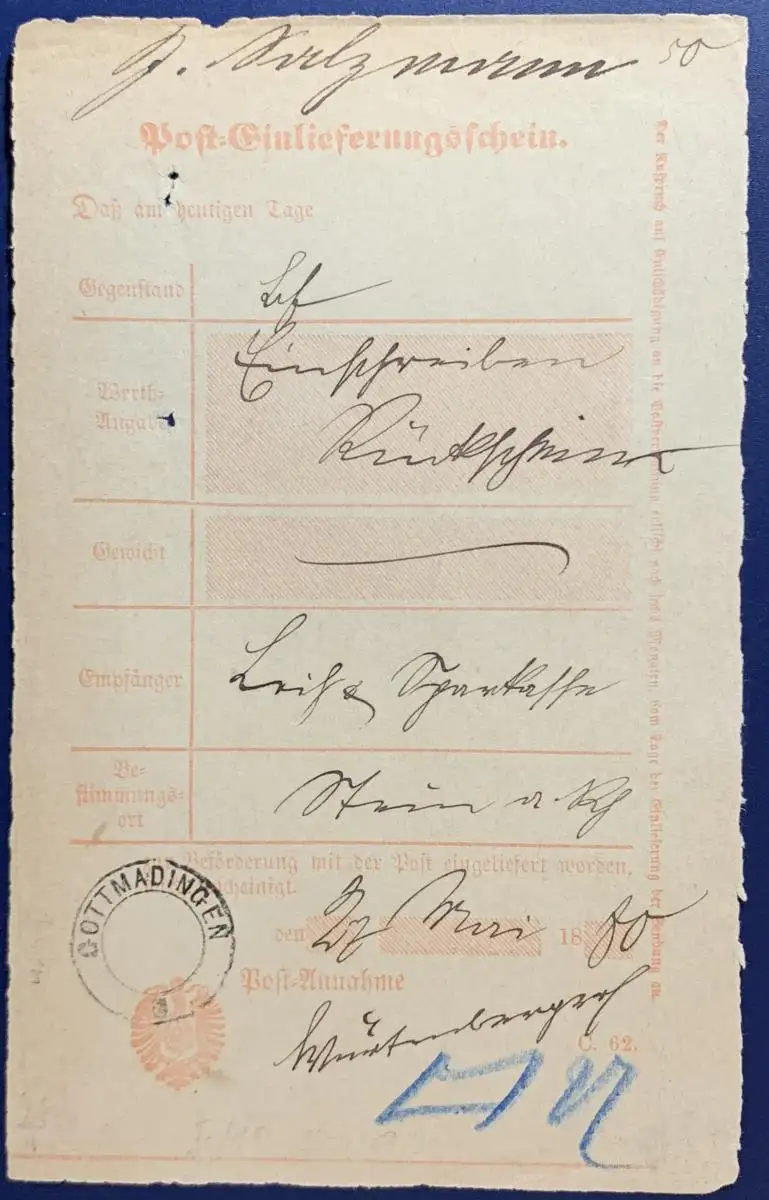 Salzmann 50
Post-Einlieferungsschein.
Daß am heutigen Tage
Gegenstand
Bf
Werth-
Angabe
Einschreiben
Rückschein
Gewicht
Empfänger
Leih & Sparkasse
Be-
stimmungs-
ort
Stein a. Rh
zur Beförderung mit der Post eingeliefert worden,
bescheinigt.
den 27 Mai 1880
GOTTMADINGEN
Post-Annahme
C. 62.
Der Anspruch auf Entschädigung an die Postverwaltung erlischt nach sechs Monaten, vom Tage der Einlieferung der Sendung an.